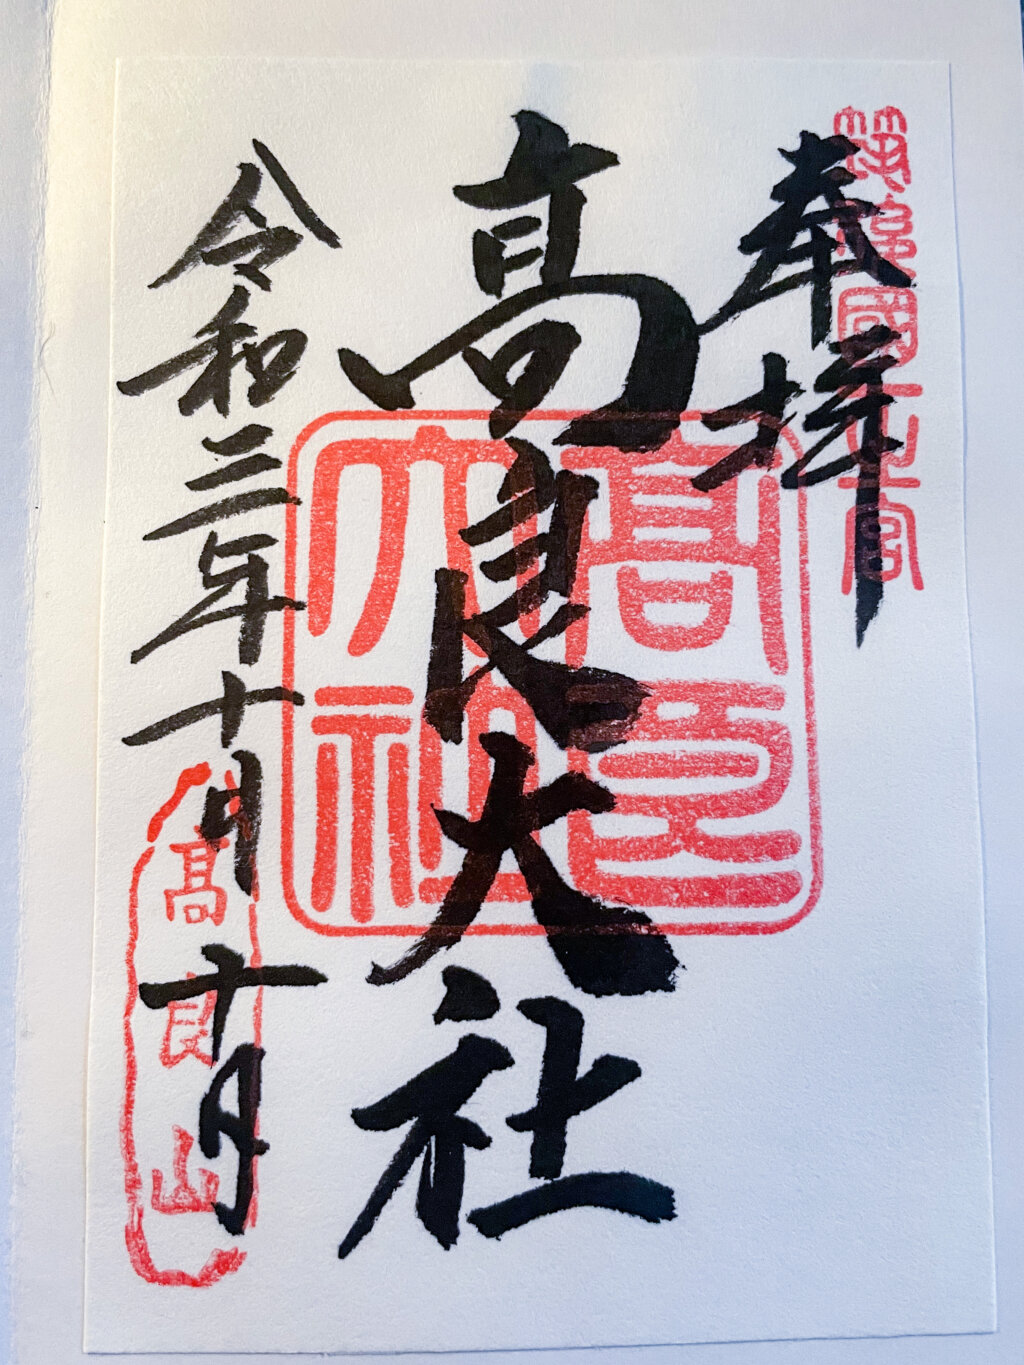 筑後國一之宮
奉拝
高良大社
高良大社
令和三年十月十月
高良山